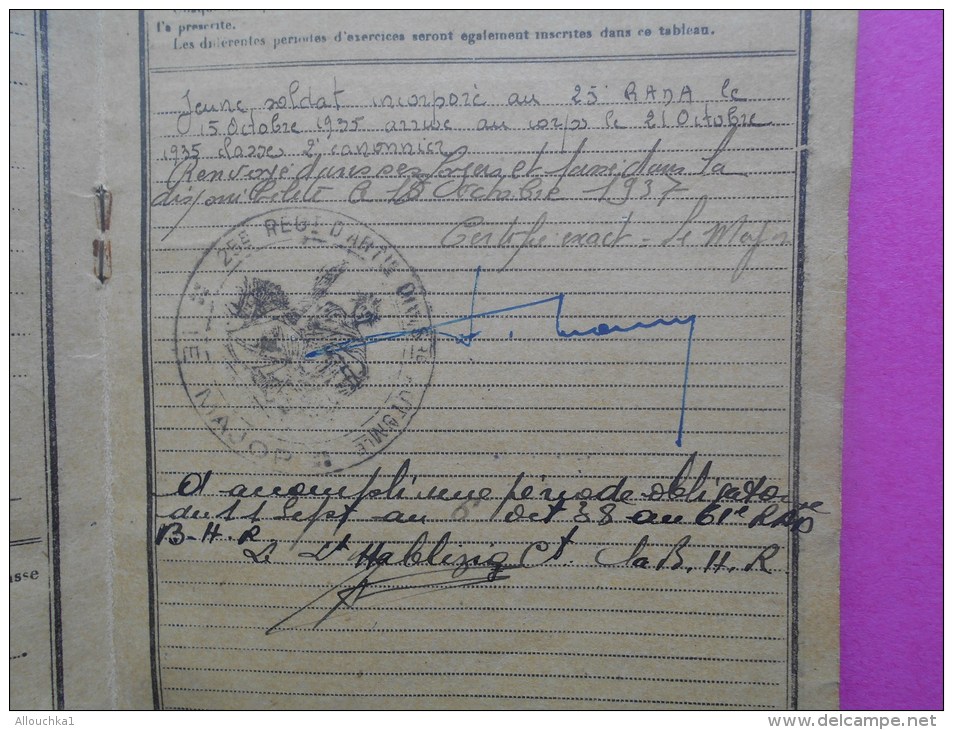 l'a prescrite.
Les différentes périodes d'exercices seront également inscrites dans ce tableau.
Jeune soldat incorporé au 25e RADA le
15 Octobre 1935 arrivé au corps le 21 Octobre
1935 classé 2e canonnier
Renvoyé dans ses foyers et passé dans la
disponibilité le 15 Octobre 1937
Certifié exact - Le Major
25E REGT D'ARTIE DIVRE AUTOMLE
LE MAJOR
A accompli une période obligatoire
du 11 Sept au 6 Oct 38 au 61e RAD
B.H.R
Le Lt Ct la B.H.R
asse
Allouchka1
http://www.delcampe.net